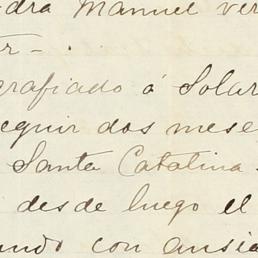 dra Manuel ver
r-.
grafiado á Solar
eguir dos mese
Santa Catalina.
desde luego el
ando con ansia